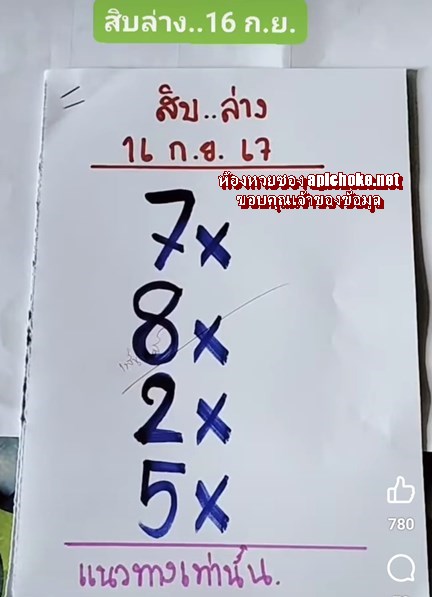 สิบล่าง..16 ก.ย.
สิบ..ล่าง
16 ก.ย. 67
ห้องหวยซอง apichoke.net
ขอบคุณเจ้าของข้อมูล
7x
8x
2x
5x
780
แนวทางเท่านั้น.